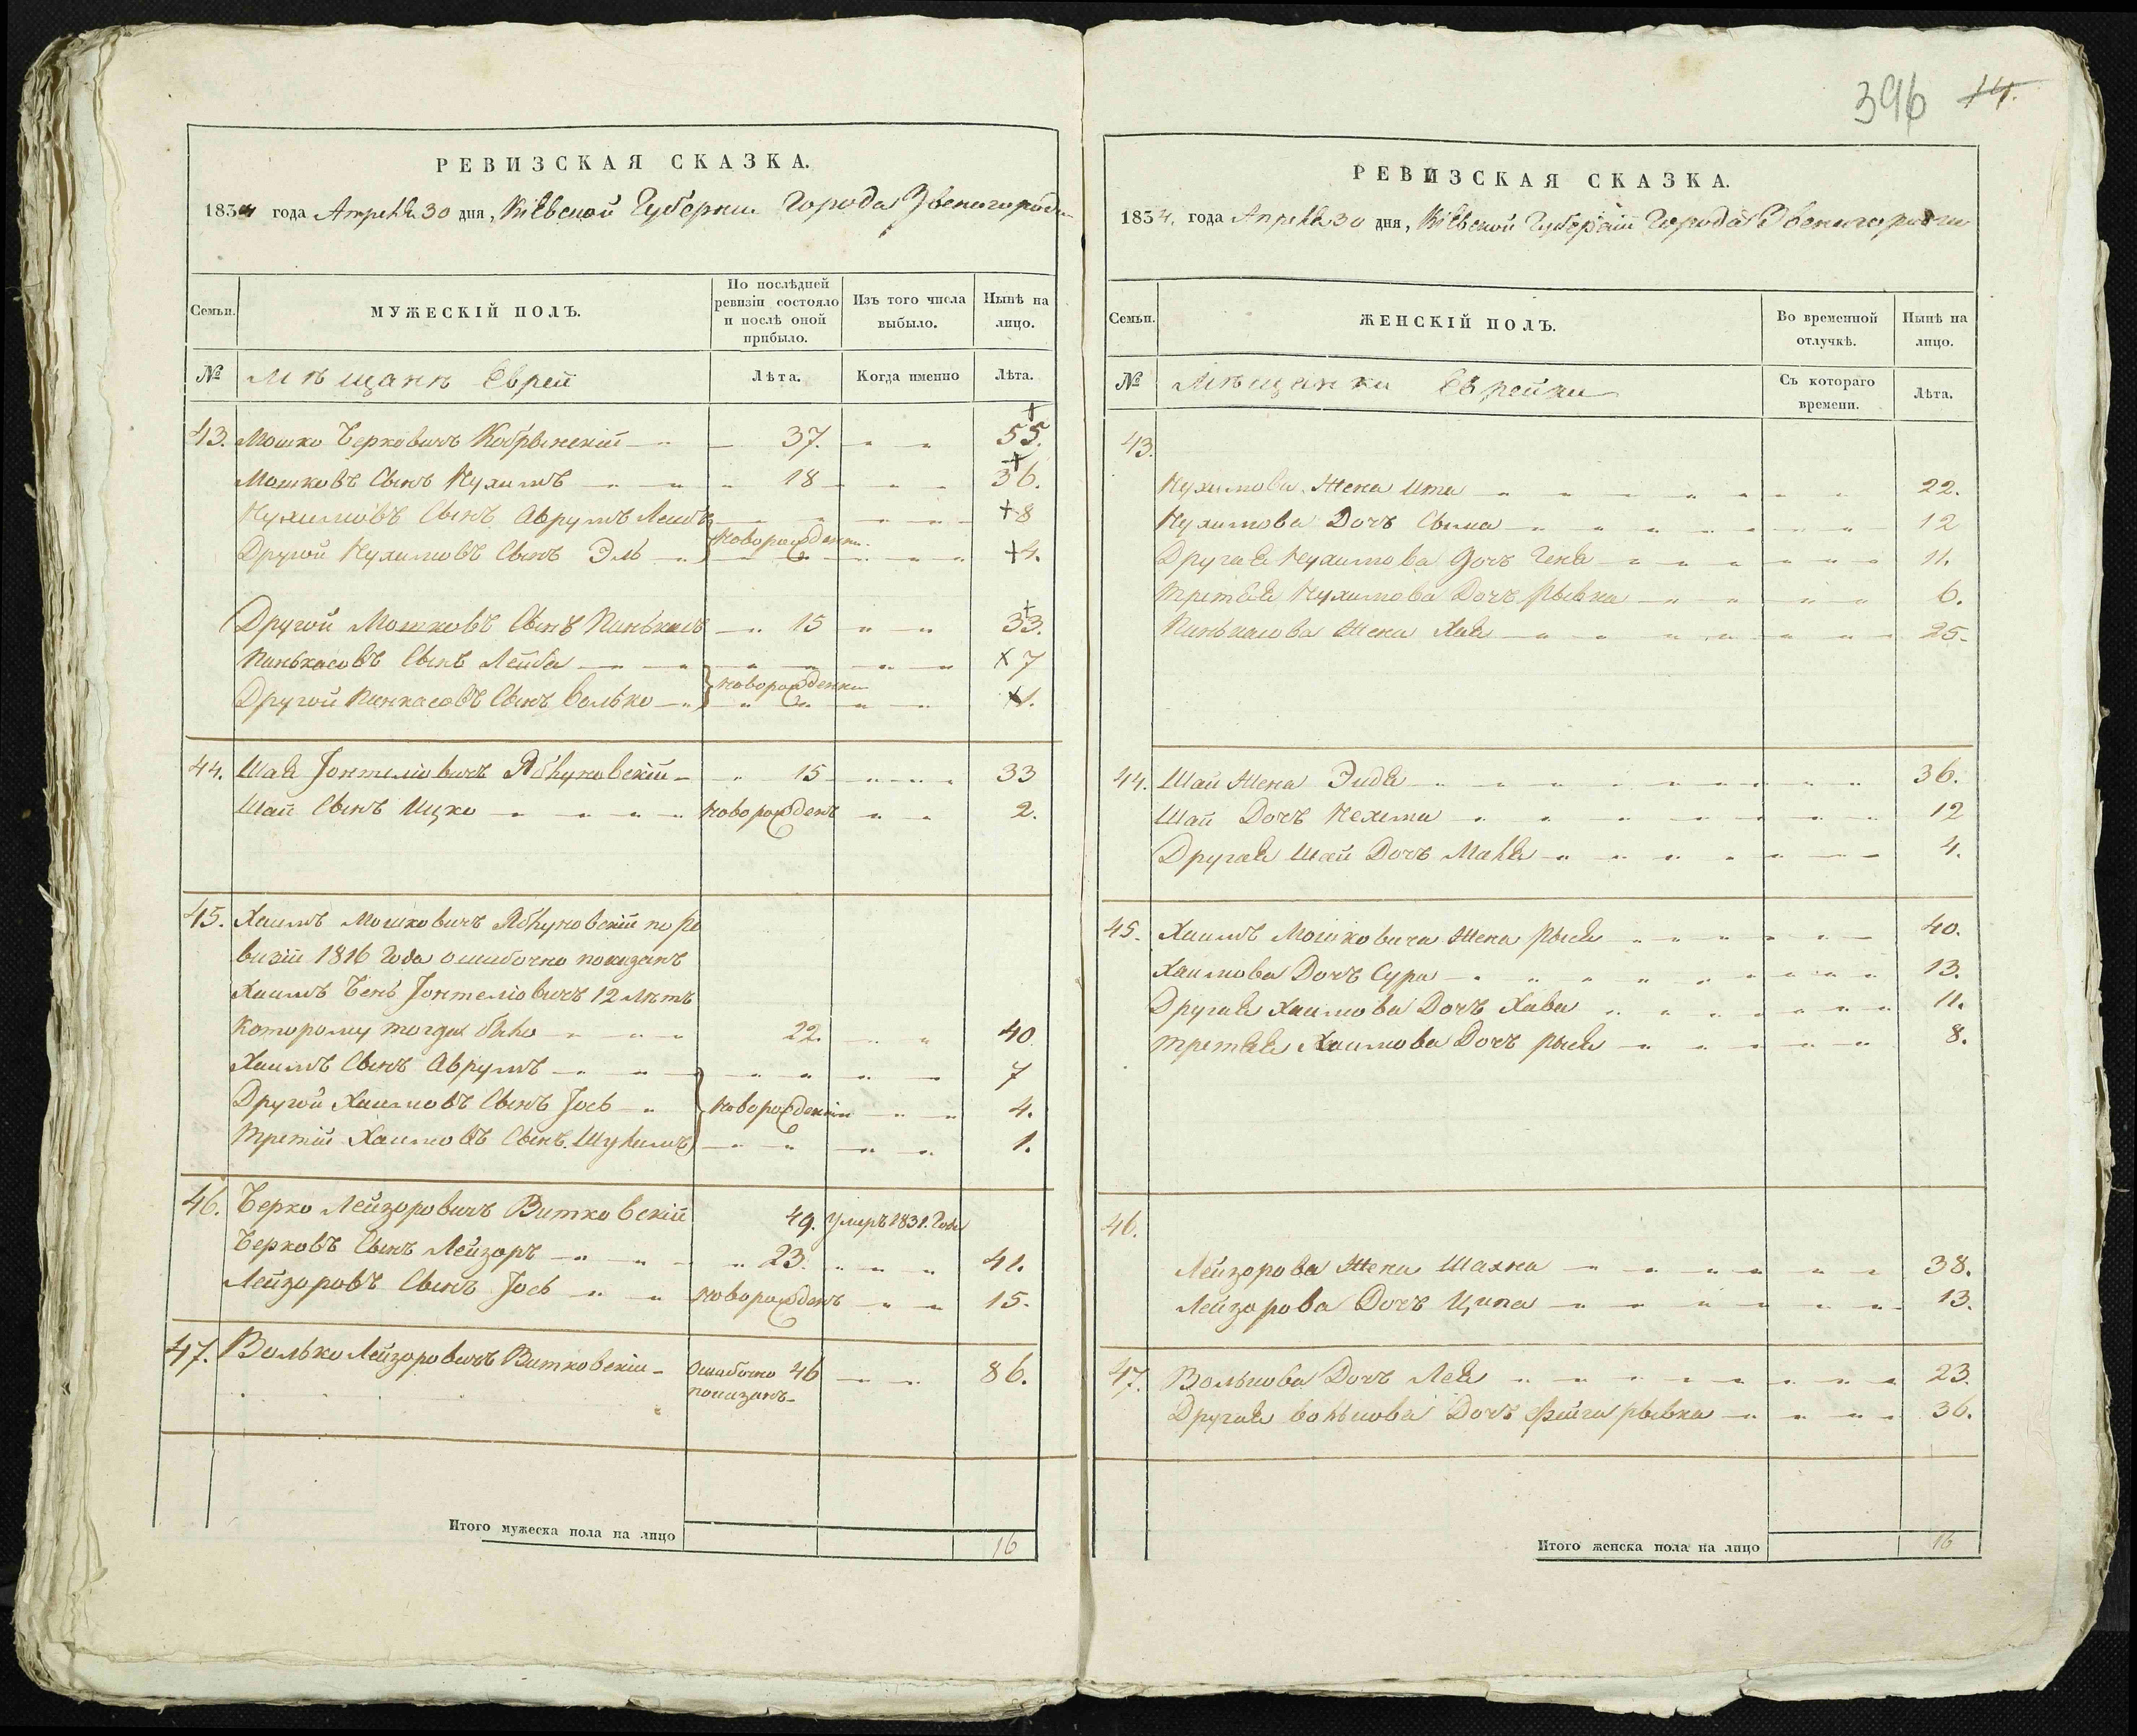 396 14.
РЕВИЗСКАЯ СКАЗКА.
1834 года Апреля 30 дня, Кіевской Губерніи Города Звенигородки
Семьи. МУЖЕСКІЙ ПОЛЪ. По послѣдней ревизіи состояло и послѣ оной прибыло. Изъ того числа выбыло. Нынѣ на лицо.
№ Мѣщанъ Еврей Лѣта. Когда именно Лѣта.
43. Мошко Берковичъ Кобрынскій 37. 55.
Мошковъ Сынъ Нухимъ 18 36.
Нухимовъ Сынъ Аврумъ Лейбъ 8
новорожденни
Другой Нухимовъ Сынъ Эль 4.
Другой Мошковъ Сынъ Пинькасъ 15 33.
Пинькасовъ Сынъ Лейба 7
новорожденни
Другой Пинкасовъ Сынъ Волько 1.
44. Шая Іонтелiовичъ Яблуновскій 15 33
Шаи Сынъ Ицко новорожденъ 2.
45. Хаимъ Мошковичъ Яблуновскій по ре
визіи 1816 Года ошибочно показанъ
Хаимъ Бенъ Іонтелiовичъ 12 лѣтъ
которому тогда было 22. 40
Хаимъ Сынъ Аврумъ 7
Другой Хаимовъ Сынъ Іось новорожденни 4.
Третій Хаимовъ Сынъ Шулимъ 1.
46. Берко Лейзоровичъ Витковскій 49. Умеръ 1831. Года
Берковъ Сынъ Лейзоръ 23. 41.
Лейзоровъ Сынъ Іось новорожденъ 15.
47. Волько Лейзоровичъ Витковскій Ошибочно показанъ 46 86.
Итого мужеска пола на лицо 16
РЕВИЗСКАЯ СКАЗКА.
1834. года Апреля 30 дня, Кіевской Губерніи Города Звенигородки
Семьи. ЖЕНСКІЙ ПОЛЪ. Во временной отлучкѣ. Нынѣ на лицо.
№ Мѣщанки Еврейки Съ котораго времени. Лѣта.
43.
Нухимова Жена Ита 22.
Нухимова Дочъ Сыма 12
Другая Нухимова Дочъ Геня 11.
Третья Нухимова Дочъ Рывка 6.
Пинькасова Жена Хая 25.
44. Шаи Жена Эидя 36.
Шаи Дочъ Нехима 12
Другая Шаи Дочъ Маля 4.
45. Хаимъ Мошковича Жена Рыся 40.
Хаимова Дочъ Сура 13.
Другая Хаимова Дочъ Хава 11.
Третяя Хаимова Дочъ Рыся 8.
46.
Лейзорова Жена Шахна 38.
Лейзорова Дочъ Ципа 13.
47. Волькова Дочъ Лея 23.
Другая Волькова Дочъ Фейга Рывка 36.
Итого женска пола на лицо 16